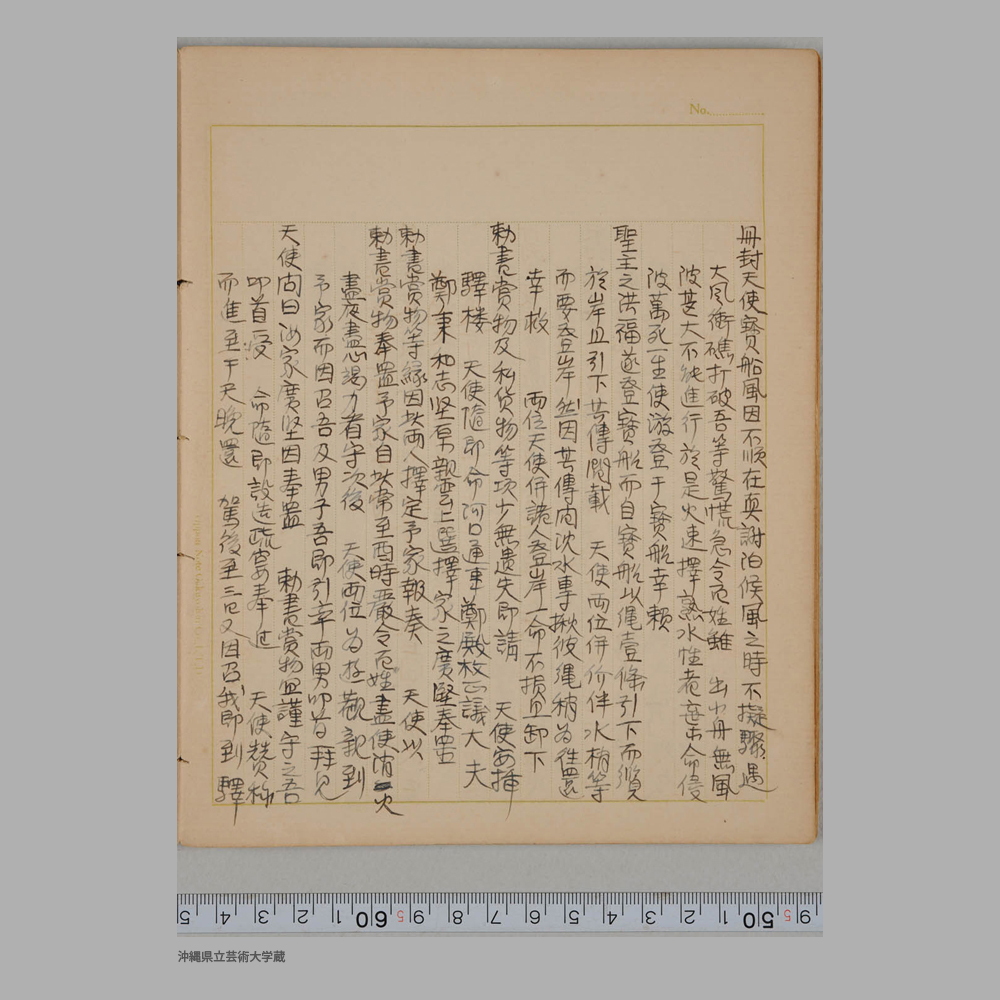 No.
冊封天使寳船風因不順在真謝泊候風之時不擬驟遇
大風衝礁打破吾等驚慌急令百姓雖　出小舟無風
波甚大不能進行於是火速擇熟水性者棄命侵
波萬死一生使游登于寳船幸賴
聖主之洪福遂登寳船而自寳船以繩壹條引下而纜
於岸且引下其傳間載　天使両位併价伴水梢等
而要登岸　然因其傳間沈水專揪彼繩稍為往還
幸救　　両位天使併諸人登岸一命不損且卸下
勅書賞物及科貨物等項少無遺失即請　　天使安插
驛楼　天使随即命河口通事鄭殿枚正議大夫
鄭秉和志堅房親雲上選擇　家之廣堅奉置
勅書賞物等縁因此両人擇定予家報奏　　天使以
勅書賞物奉置予家自此常至酉時嚴令百姓盡使消火
盡夜盡心竭力看守次後　天使両位為遊觀親到
予家而因召吾及男子吾即引率両男叩首拜見
天使問曰汝家廣堅因奉置　勅書賞物宜謹守之吾
叩首受　命随即設造疏宴奉進　　天使賛称
而進至于天晩還　駕後至三日又因召我即到驛
50 1 2 3 4 5 6 7 8 9 60 1 2 3 4 5
沖縄県立芸術大学蔵